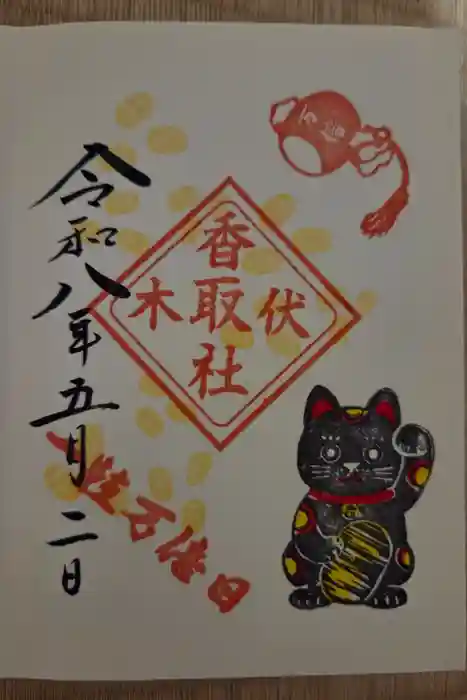 香取社
伏木
令和八年五月二日
一粒万倍日